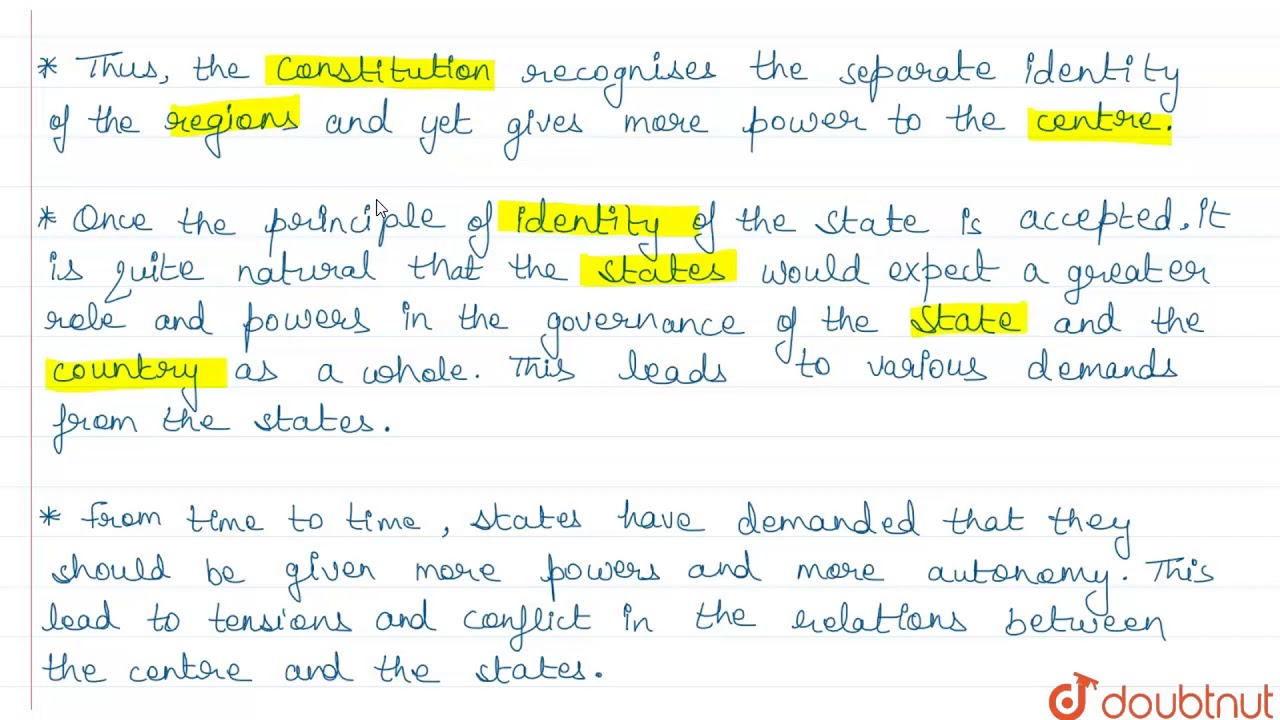 * Thus, the Constitution recognises the separate identity
of the regions and yet gives more power to the centre.
* Once the principle of identity of the state is accepted, it
is quite natural that the states would expect a greater
role and powers in the governance of the state and the
country as a whole. This leads to various demands
from the states.
* From time to time, states have demanded that they
should be given more powers and more autonomy. This
lead to tensions and conflict in the relations between
the centre and the states.
doubtnut